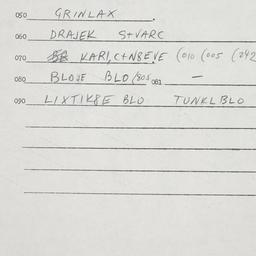 050 GRINLAX
060 DRAJEK S+VARC
070 KARI,C+N8EVE (010 (005 (242
080 BLOJE BLO/805 081 —
090 LIXTIK8E BLO TUNKLBLO